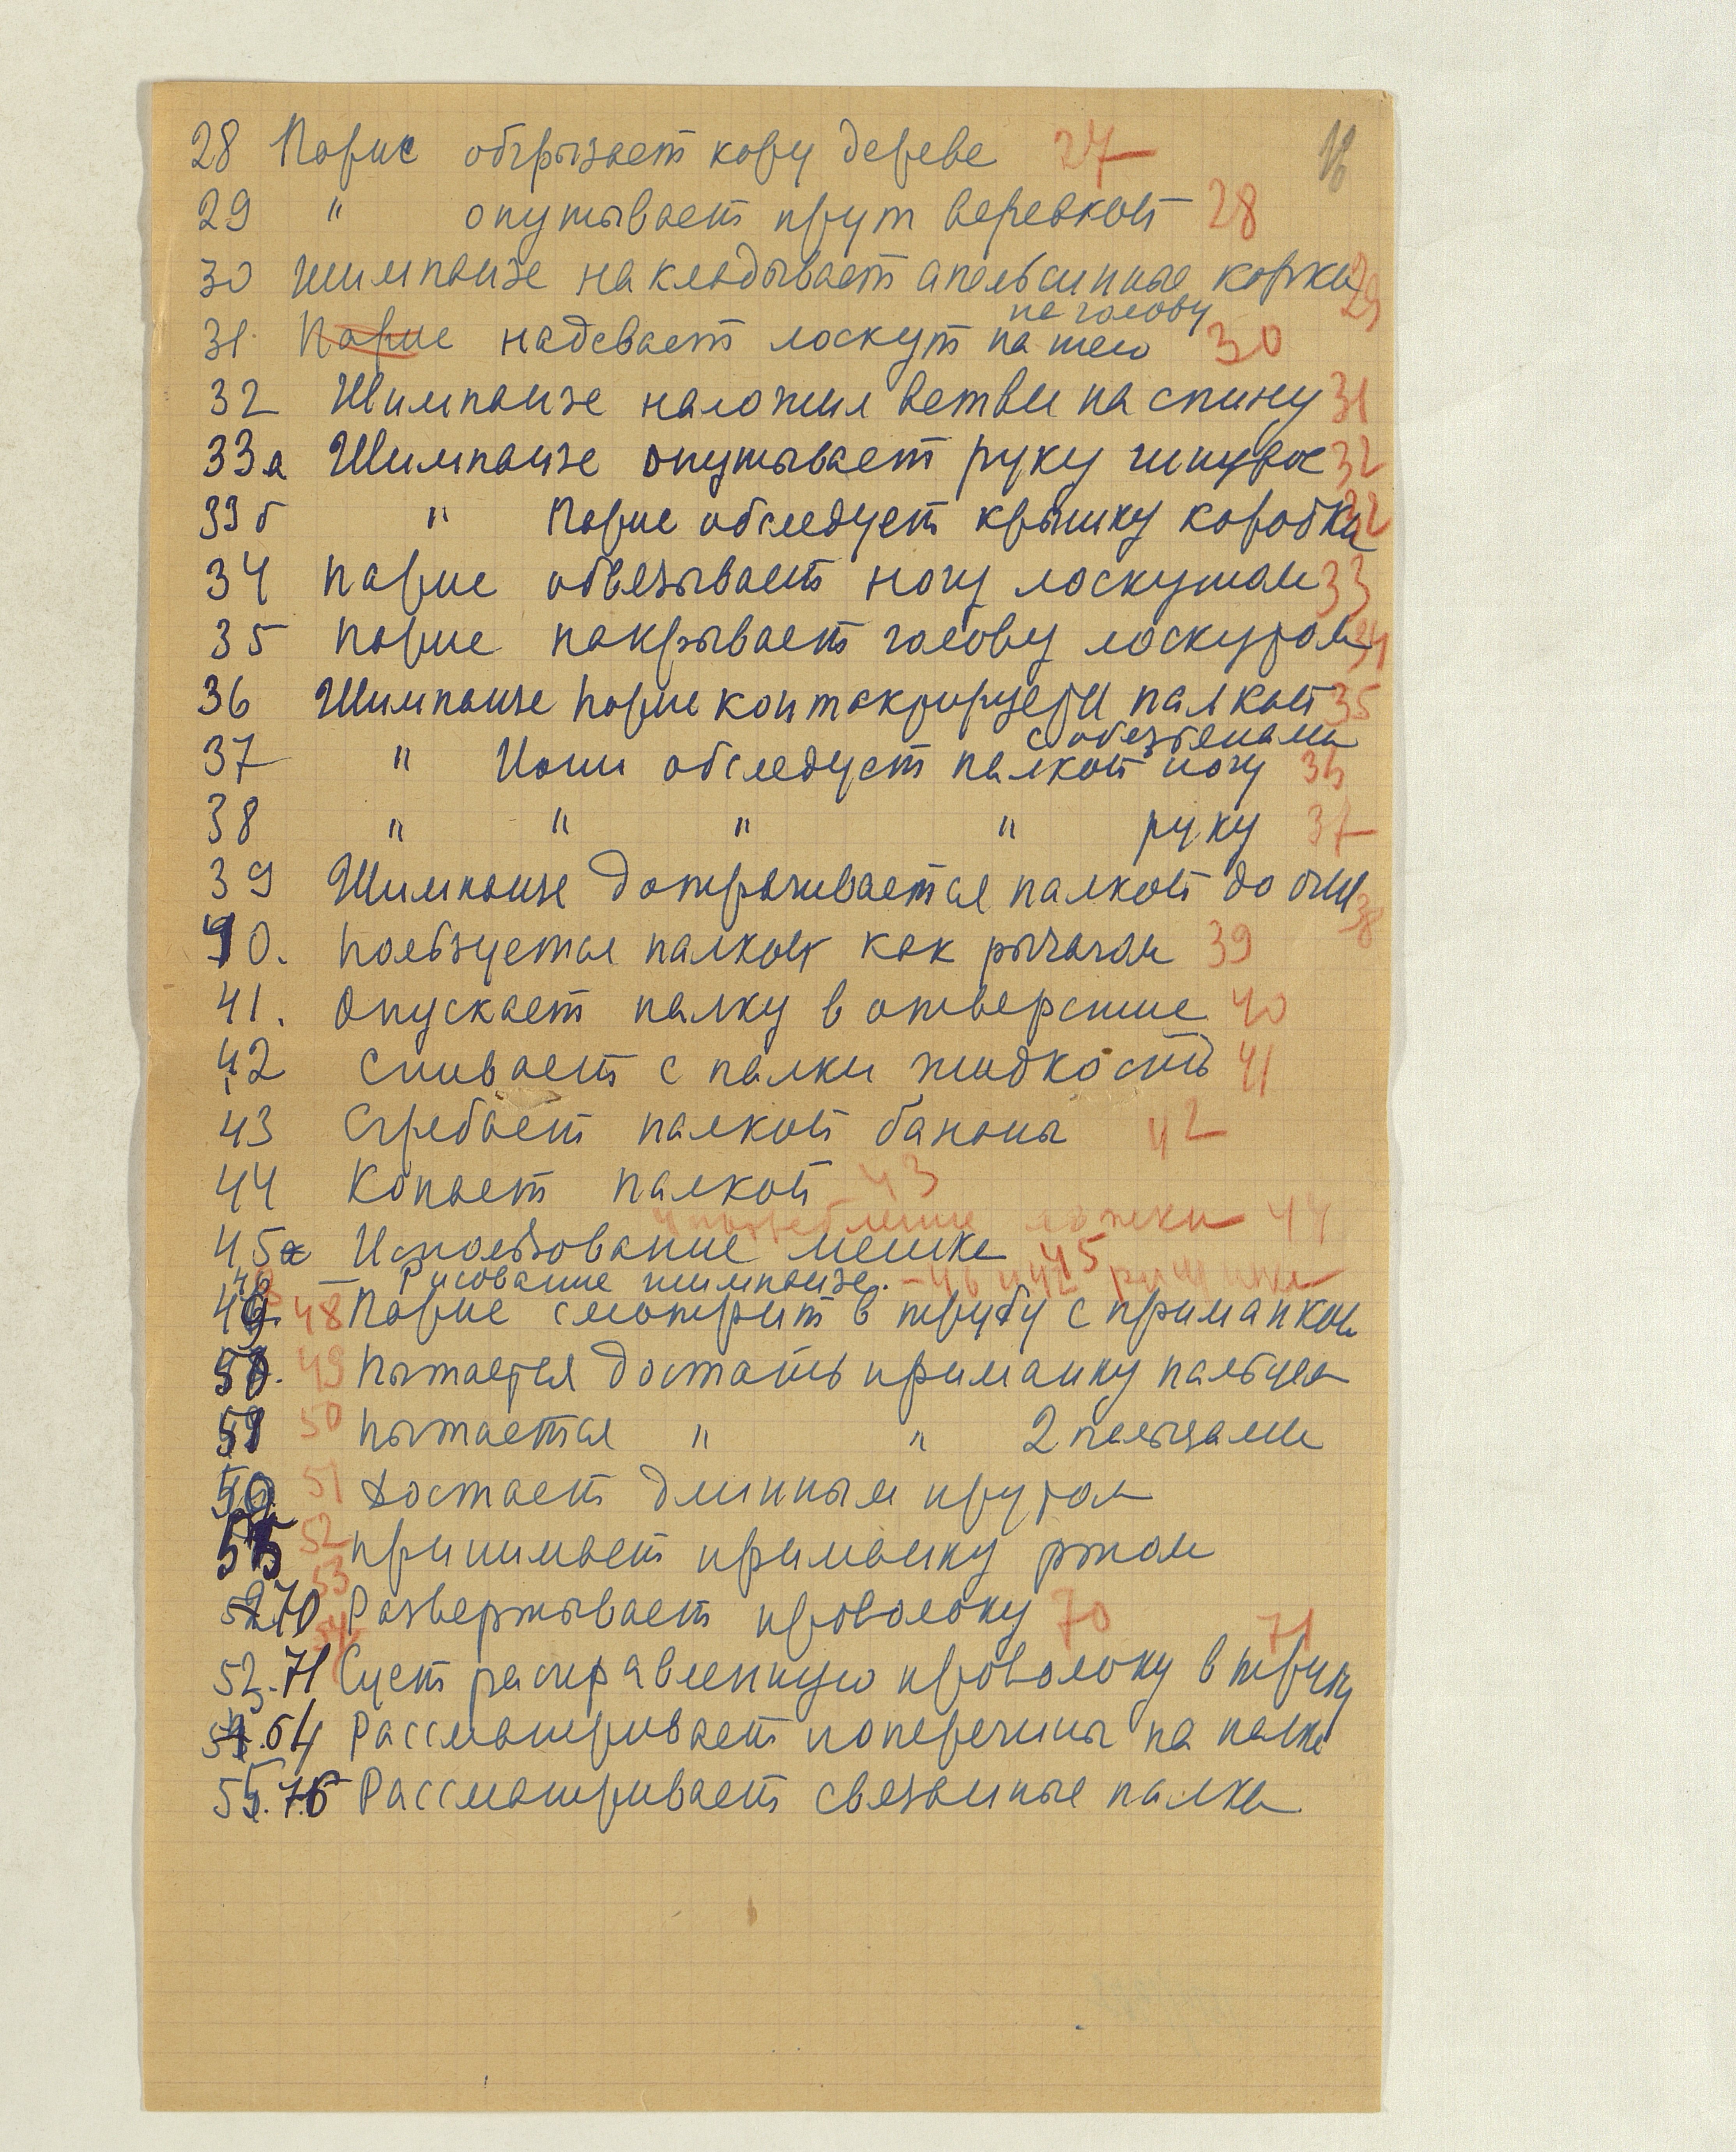 28 Парис обгрызает кору дерева 27
29 " опутывает прут веревкой 28
30 Шимпанзе накладывает апельсинные корки 29
на голову
31. Парис надевает лоскут на шею 30
32 Шимпанзе наложил ветви на спину 31
33а Шимпанзе опутывает руку шнуром 32
33б " Парис обследует крышку коробки 32
34 Парис обвязывает ногу лоскутом 33
35 Парис покрывает голову лоскутом 34
36 Шимпанзе Парис контактирует палкой 35
с обезьянами
37 " Иони обследует палкой ногу 36
38 " " " " руку 37
39 Шимпанзе дотрагивается палкой до 38
40. Пользуется палкой как рычагом 39
41. Опускает палку в отверстие 40
42 Слизывает с палки жидкость 41
43 Сгребает палкой бананы 42
44 Копает палкой 43
употребление ложки 44
45 Использование мешка 45
Рисование шимпанзе. - 46 и 47
49. 48 Парис смотрит в трубу с приманкой
50. 49 Пытается достать приманку пальцем
51 50 Пытается " " 2 пальцами
51 Достает длинным прутом
52 принимает приманку ртом
53
70 Развертывает проволоку 70
54 71
71 Сует расправленную проволоку в трубу
54 Рассматривает поперечины на палке
55. 76 Рассматривает связанные палки